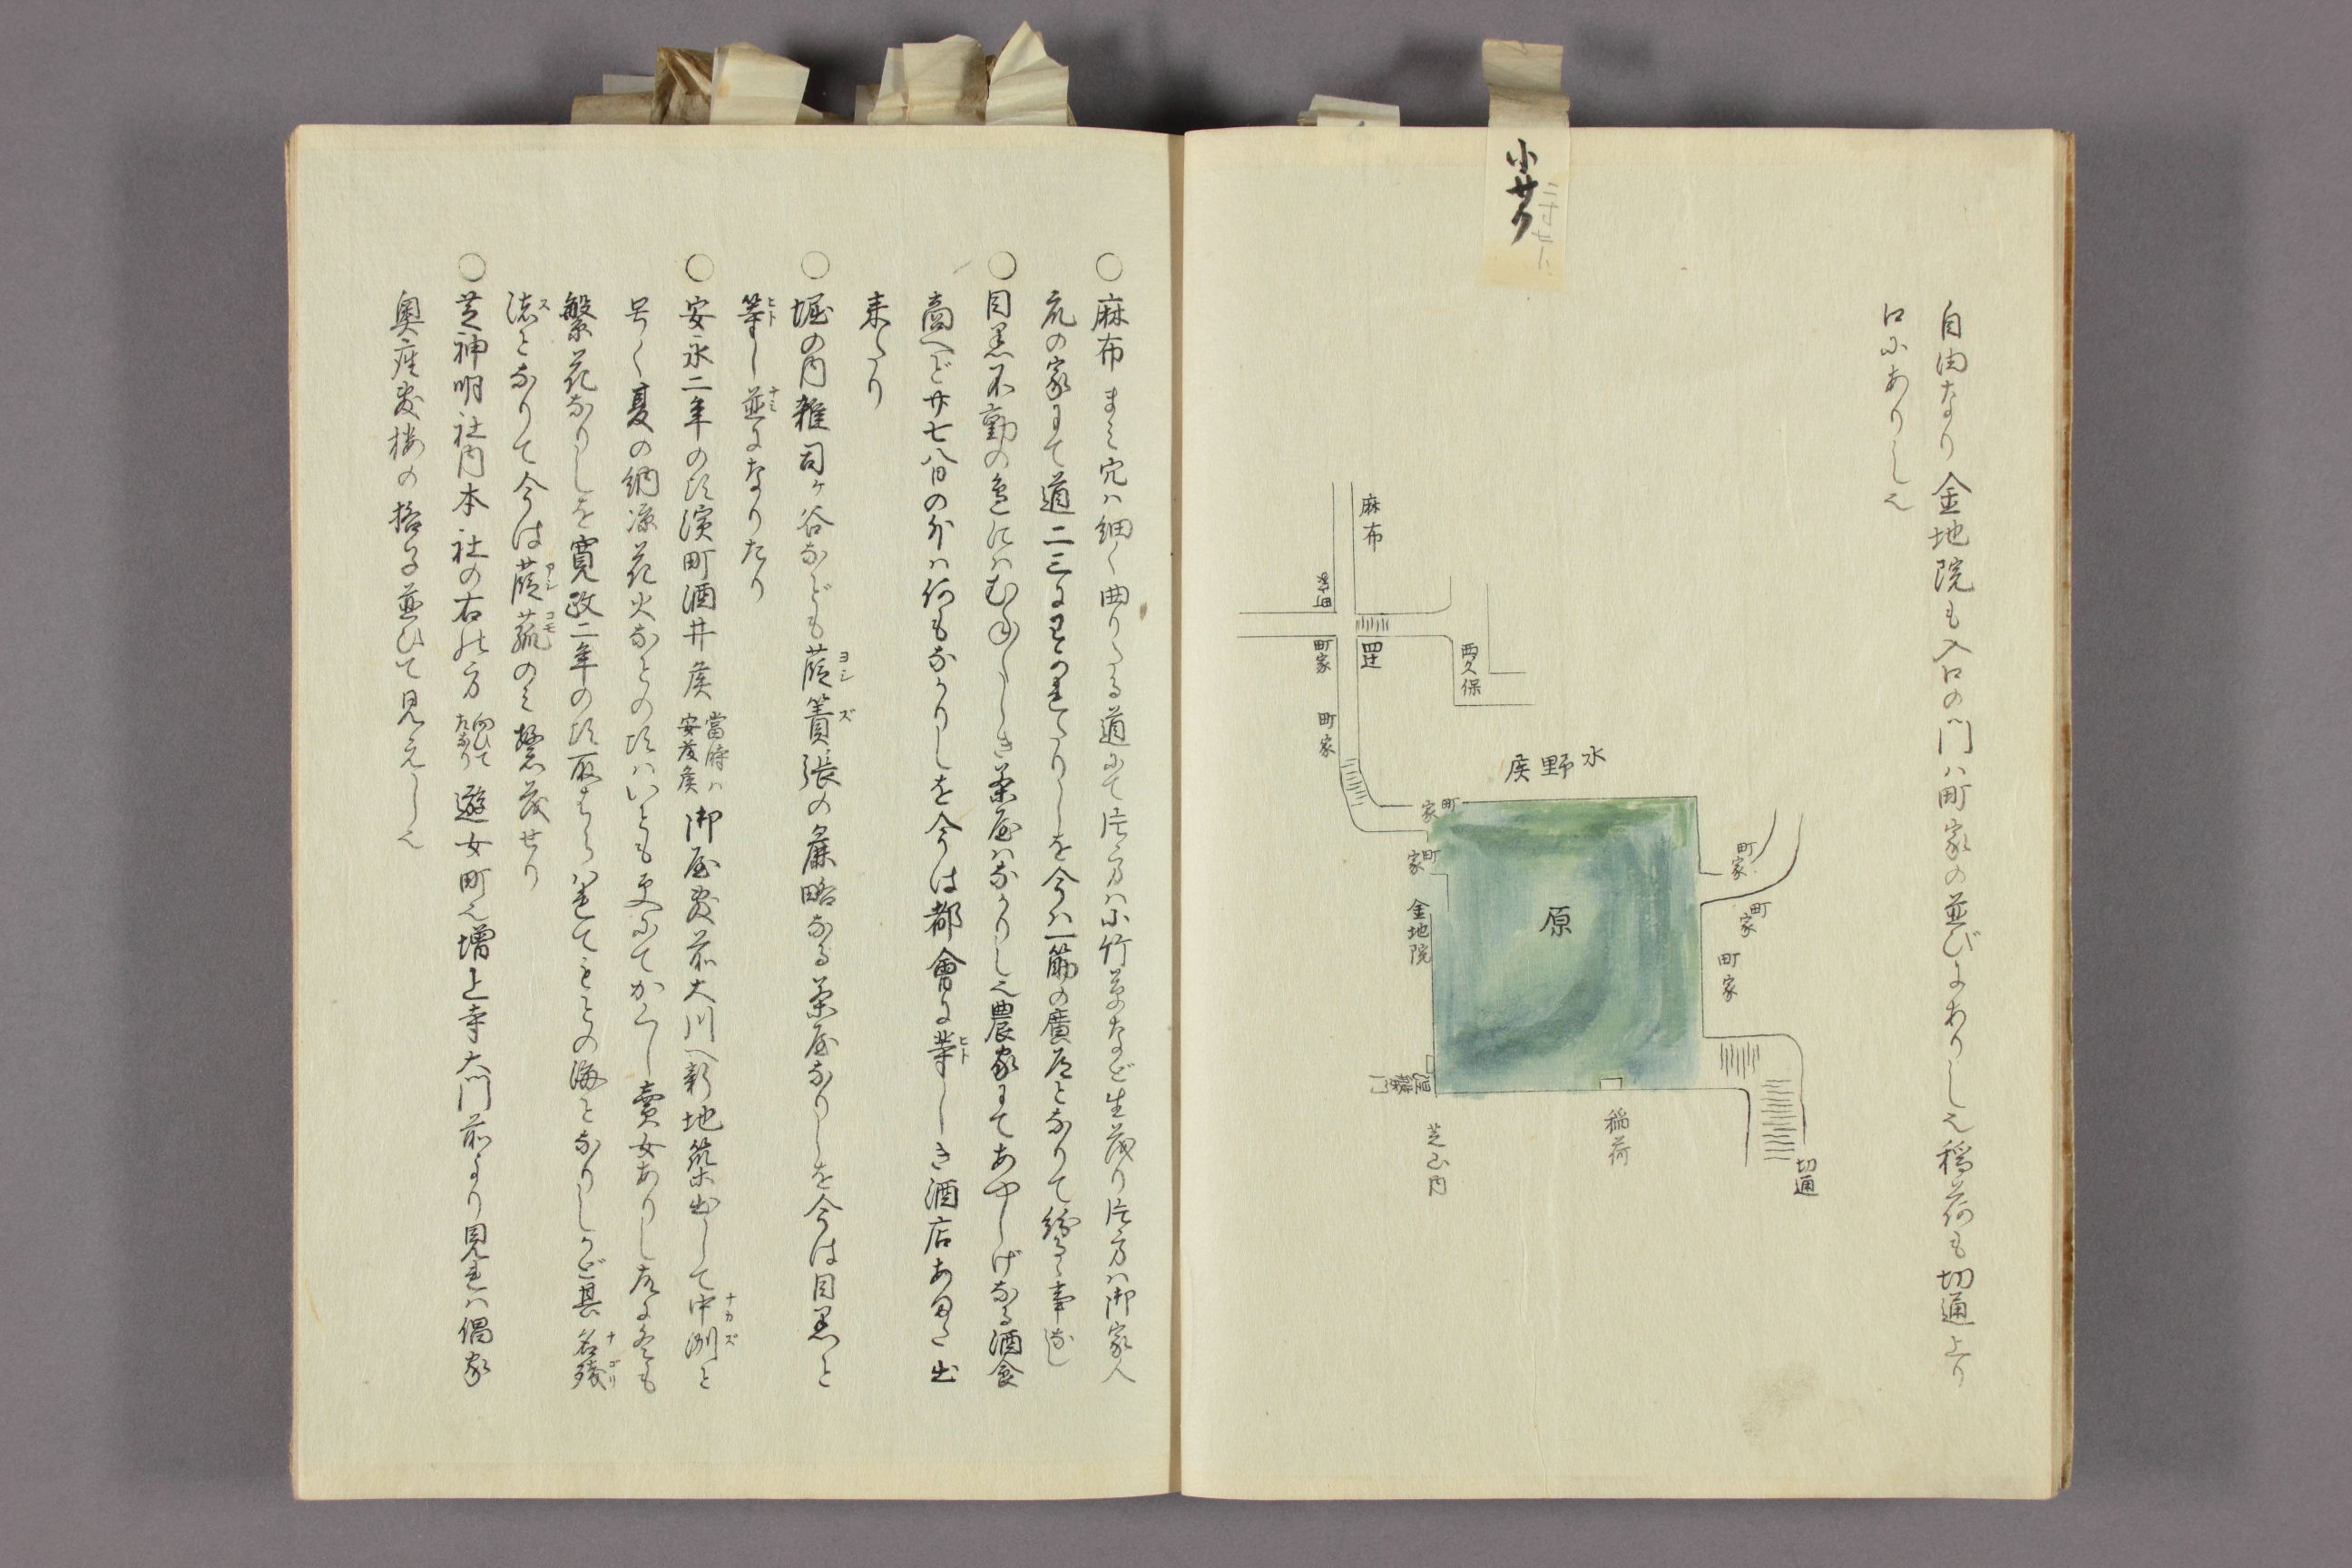 小サク
自由なり金地院も入口の門ハ町家の並びにありし也稲荷も切通上り
口にありし也
麻布
町家
町家
四辻
西久保
町家
水野侯
町家
町家
町家
町家
町家
原
金地院
稲荷
切通
芝山内
○麻布まミ穴ハ細く曲りたる道にて片方ハ小竹草など生茂り片方ハ御家人
衆の家にて道二三にわかれたりしを今ハ一筋の廣道となりて紛るゝ事なし
○目黒不動の邊にハむかしハしき茶屋ハなかりし也農家にてあやしげなる酒食
商へど廿七八日の外ハ何もなかりしを今は都會に等ヒトしき酒店あまた出
来たり
○堀の内雑司ヶ谷なども葭ヨシ簀ズ張の麁略なる茶屋なりしを今は目黒と
等ヒトし並ナミになりたり
○安永二年の頃濱町酒井侯當時ハ安藤侯御屋敷前大川へ新地築出して中ナカ洲ズと
号く夏の納凉花火などの頃ハいとも更にてかくし賣女ありし故に冬も
繁花なりしを寛政二年の頃取はらハれてもとの海となりしかど其名ナ残ゴリ
洲スとなりて今は葭アシ菰コモのミ繁茂せり
○芝神明社内本社の右の方向ひてたなり遊女町也増上寺大門前より見れハ倡家
奥座敷楼の格子並ひて見えし也